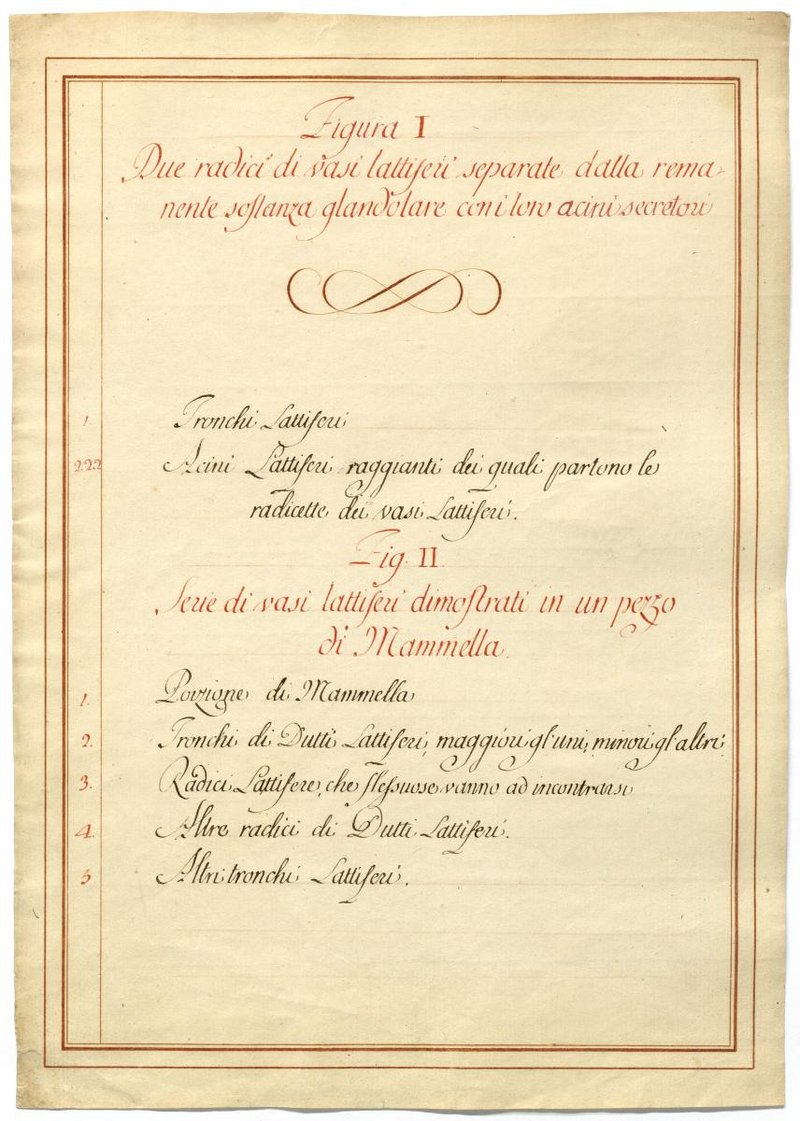 Figura I
Due radici di vasi lattiferi separate dalla rema-
nente sostanza glandolare con i loro acini secretori
1. Tronchi Lattiferi
2.2.2 Acini Lattiferi raggianti dei quali partono le
radicette dei vasi Lattiferi.
Fig. II
Serie di vasi lattiferi dimostrati in un pezzo
di Mammella.
1. Porzione di Mammella
2. Tronchi di Dutti Lattiferi, maggiori gl'uni, minori gl'altri
3. Radici Lattifere, che flessuose vanno ad incontrarsi
4. Altre radici di Dutti Lattiferi.
5 Altri tronchi Lattiferi.